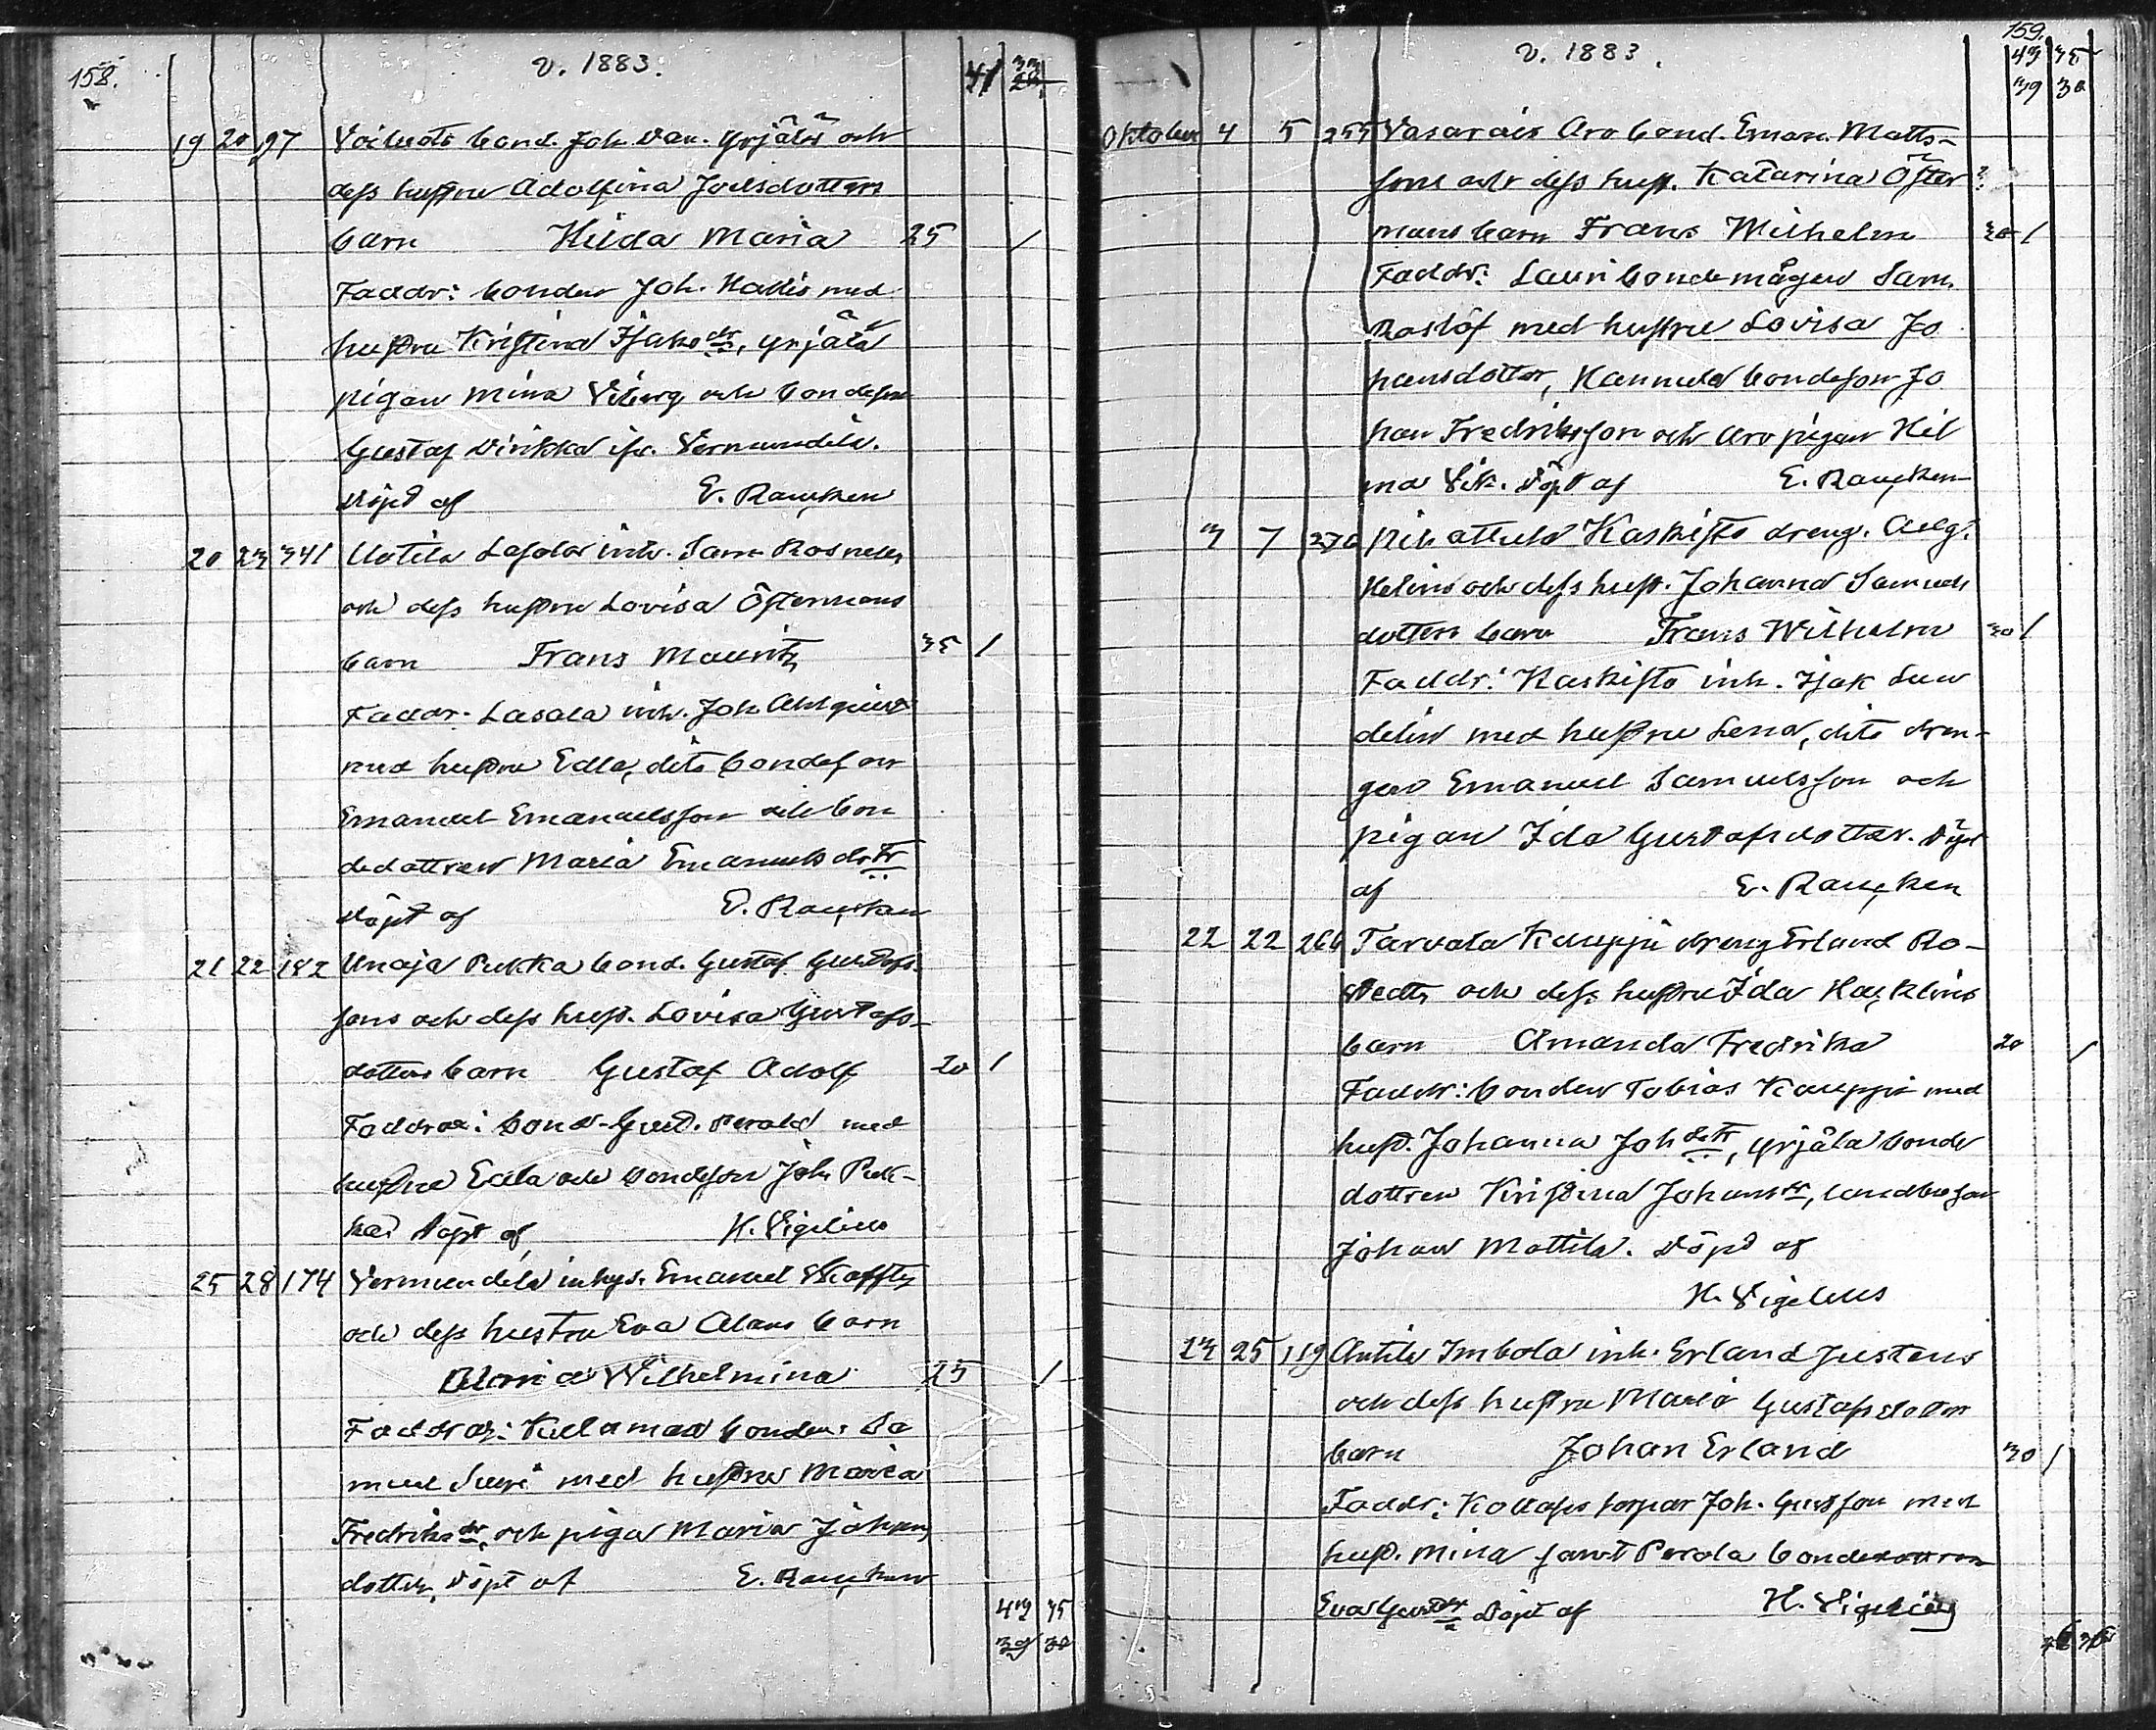 158.
v. 1883.
41 33
28
19 20 97 Voiluoto bond. Joh. Dan. Yrjäläs och
dess hustru Adolfina Joelsdotters
barn Hilda Maria 25 /
Faddr: bonden Joh. Kallis med
hustru Kristina Isaksdr, Yrjälä
pigan Mina Viberg och bondeson
Gustaf Virikka ifr. Vermundila.
Döpt af E. Rancken
20 23 341 Uotila Lasola inh. Sam Rosnells
och dess hustru Lovisa Östermans
barn Frans Mauritz 35 /
Faddr. Lasala inh. Joh. Ahlqvist
med hustru Edla, dito bondeson
Emanuel Emanuelsson och bon
dedottren Maria Emanuelsdottr
Döpt af E. Rancken
21 22 182 Unaja Pukka bond. Gustaf Gustafs-
sons och dess hust. Lovisa Gustafs-
dotters barn Gustaf Adolf 20 /
Faddrar: bond. Gust. Perälä med
hustru Edla och bondeson Joh. Puk-
ka. Döpt af H. Vigelius
25 28 174 Vermundila inhys. Emanuel Skaffty
och dess hustru Eva Alans barn
Wilhelmina 25 /
Faddrar: Kulamaa bonden Sa
muel Supi med hustru Maria
Fredriksdr, och piga Maria Johans
dotter, Döpt af E. Rancken
43 35
39 30
159.
v. 1883.
43 35
39 30
Oktober 4 5 255 Vasarais Aro bond. Eman. Matts-
sons och dess hust. Katarina Öster
mans barn Frans Wilhelm 30 /
Faddr: Lauri bondemågen Sam.
Roslöf med hustru Lovisa Jo
hansdotter, Hannula bondeson Jo
han Fredriksson och Aro pigan Hil
ma Vik. Döpt af E. Rancken
3 7 270 Kaskisto dreng. Aug.
Helins och dess hust. Johanna Samuels
dotters barn Frans Wilhelm 30 /
Faddr: Kaskisto inh. Isak Sun
delin med hustru Lena, dito dren-
gen Emanuel Samuelsson och
pigan Ida Gustafsdotter. Döpt
af E. Rancken
22 22 266 Tarvala Kauppi dreng Erland Ro-
stedts och dess hustru Ida Hacklins
barn Amanda Fredrika 20 /
Faddr: bonden Tobias Kauppi med
hust. Johanna Johdottr, Yrjälä bonde
dottren Kristina Johansdr, landboson
Johan Mattila. Döpt af
H. Vigelius
23 25 119 Anttila Imbola inh. Erland Justens
och dess hustru Maria Gustafsdotter
barn Johan Erland 30 /
Faddr: torpar Joh. Gustson med
hust. Mina samt Perola bondedottren
Eva Gustdr Döpt af H. Vigelius